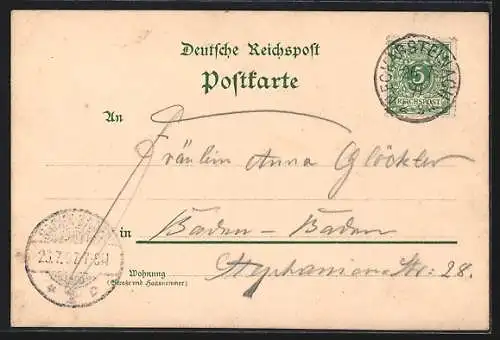 Deutsche Reichspost
Postkarte
NECKARSTEINACH
5
REICHSPOST
An
Fräulein Anna Glöckler
in Baden-Baden
Stephanienstr: 28.
Wohnung
(Straße und Hausnummer)